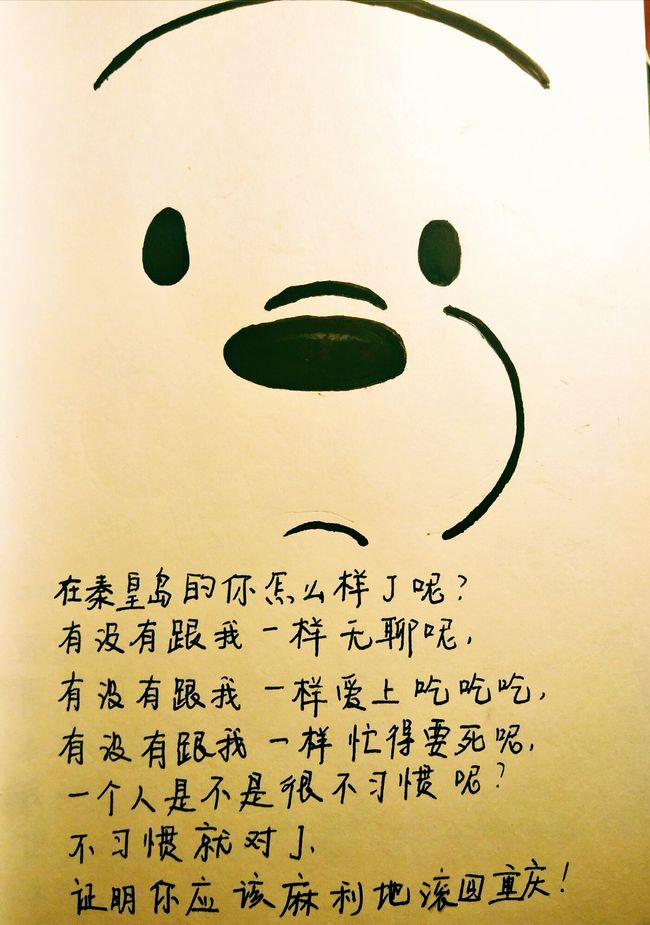 在秦皇岛的你怎么样了呢？
有没有跟我一样无聊呢，
有没有跟我一样爱上吃吃吃，
有没有跟我一样忙得要死呢，
一个人是不是很不习惯呢？
不习惯就对了、
证明你应该麻利地滚回重庆！